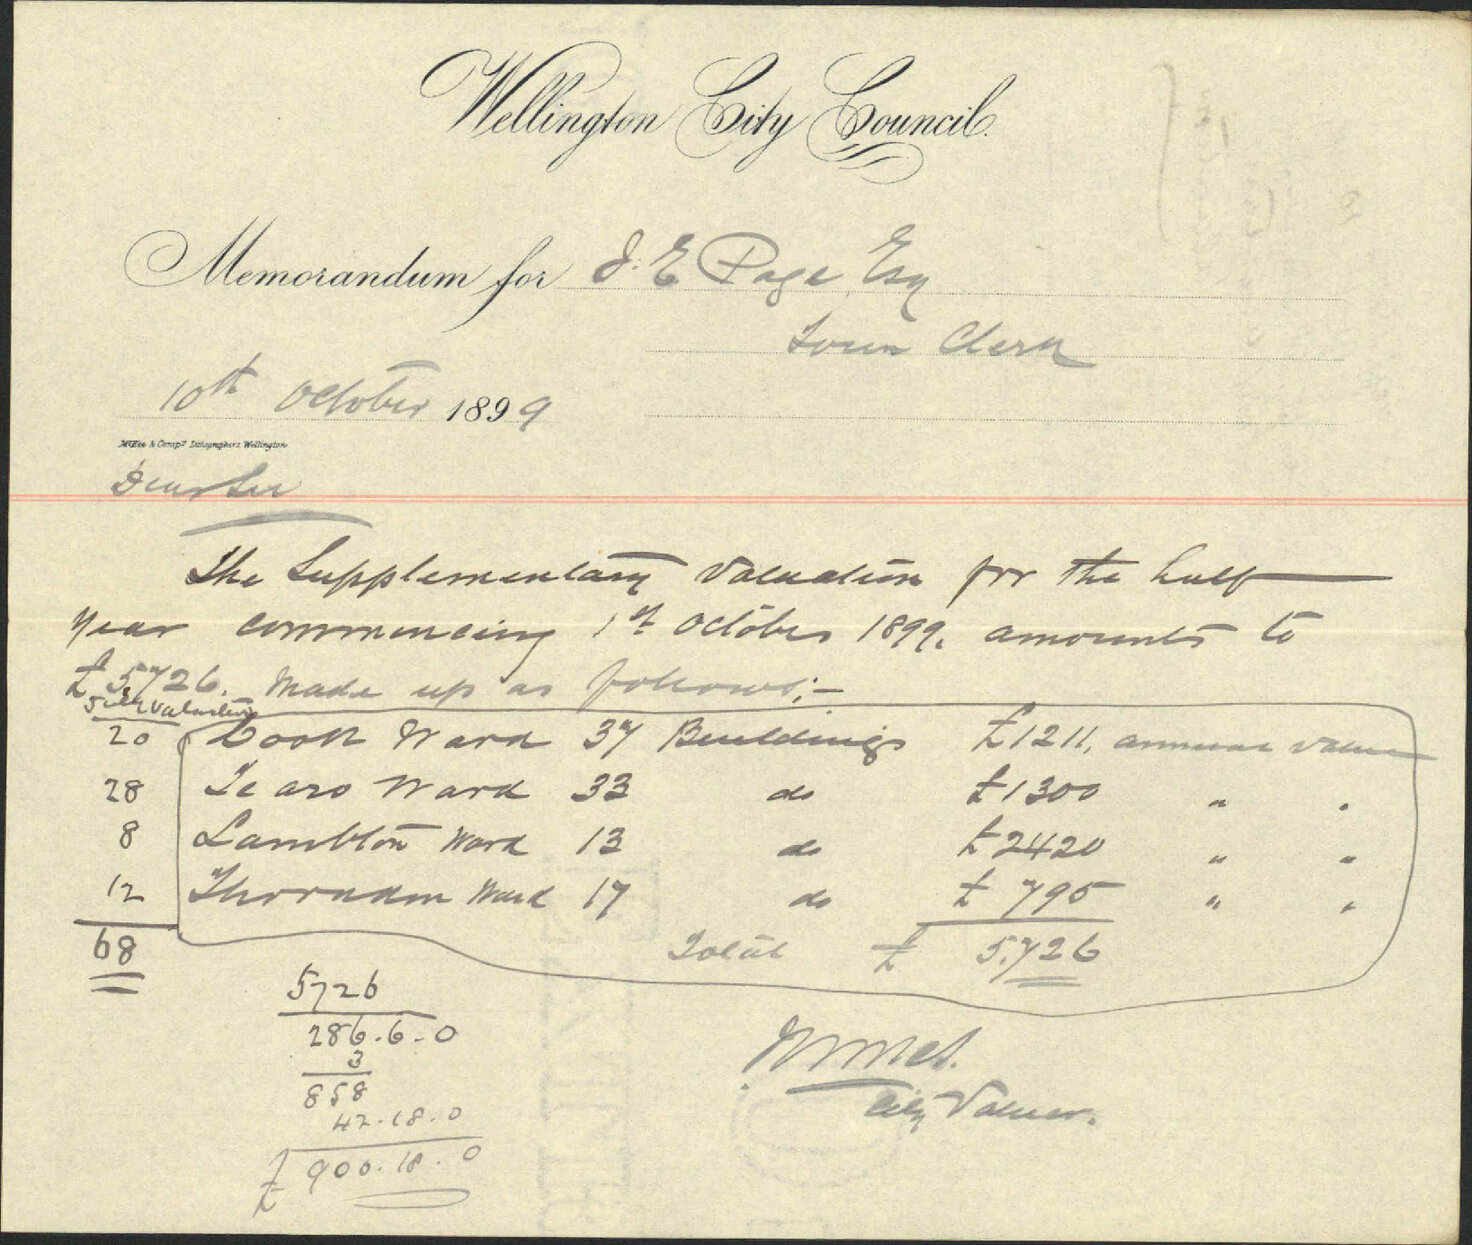 Wellington City Council.
Memorandum for J. E Page Esq
Town Clerk
10th October 1899
McKee & Compy Lithographers Wellington
Dear Sir
The Supplementary Valuation for the half
year commencing 1st October 1899. amounts to
£5,726. Made up as follows;-
Valuation
20 Cook Ward 37 Buildings £1211. annual value
28 Te aro Ward 33 do £1300 " "
8 Lambton Ward 13 do £2420 " "
12 Thorndon Ward 17 do £795 " "
68 Total £ 5,726
5726
286.6.0
3
858
42.18.0
£ 900.18.0
City Valuer.